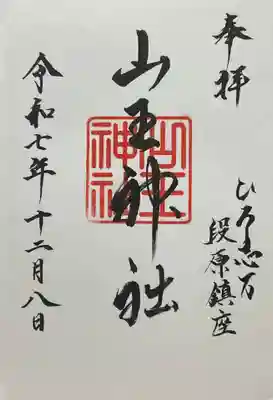 奉拝
ひろしま
段原鎮座
山王神社
山王神社
令和七年十二月八日